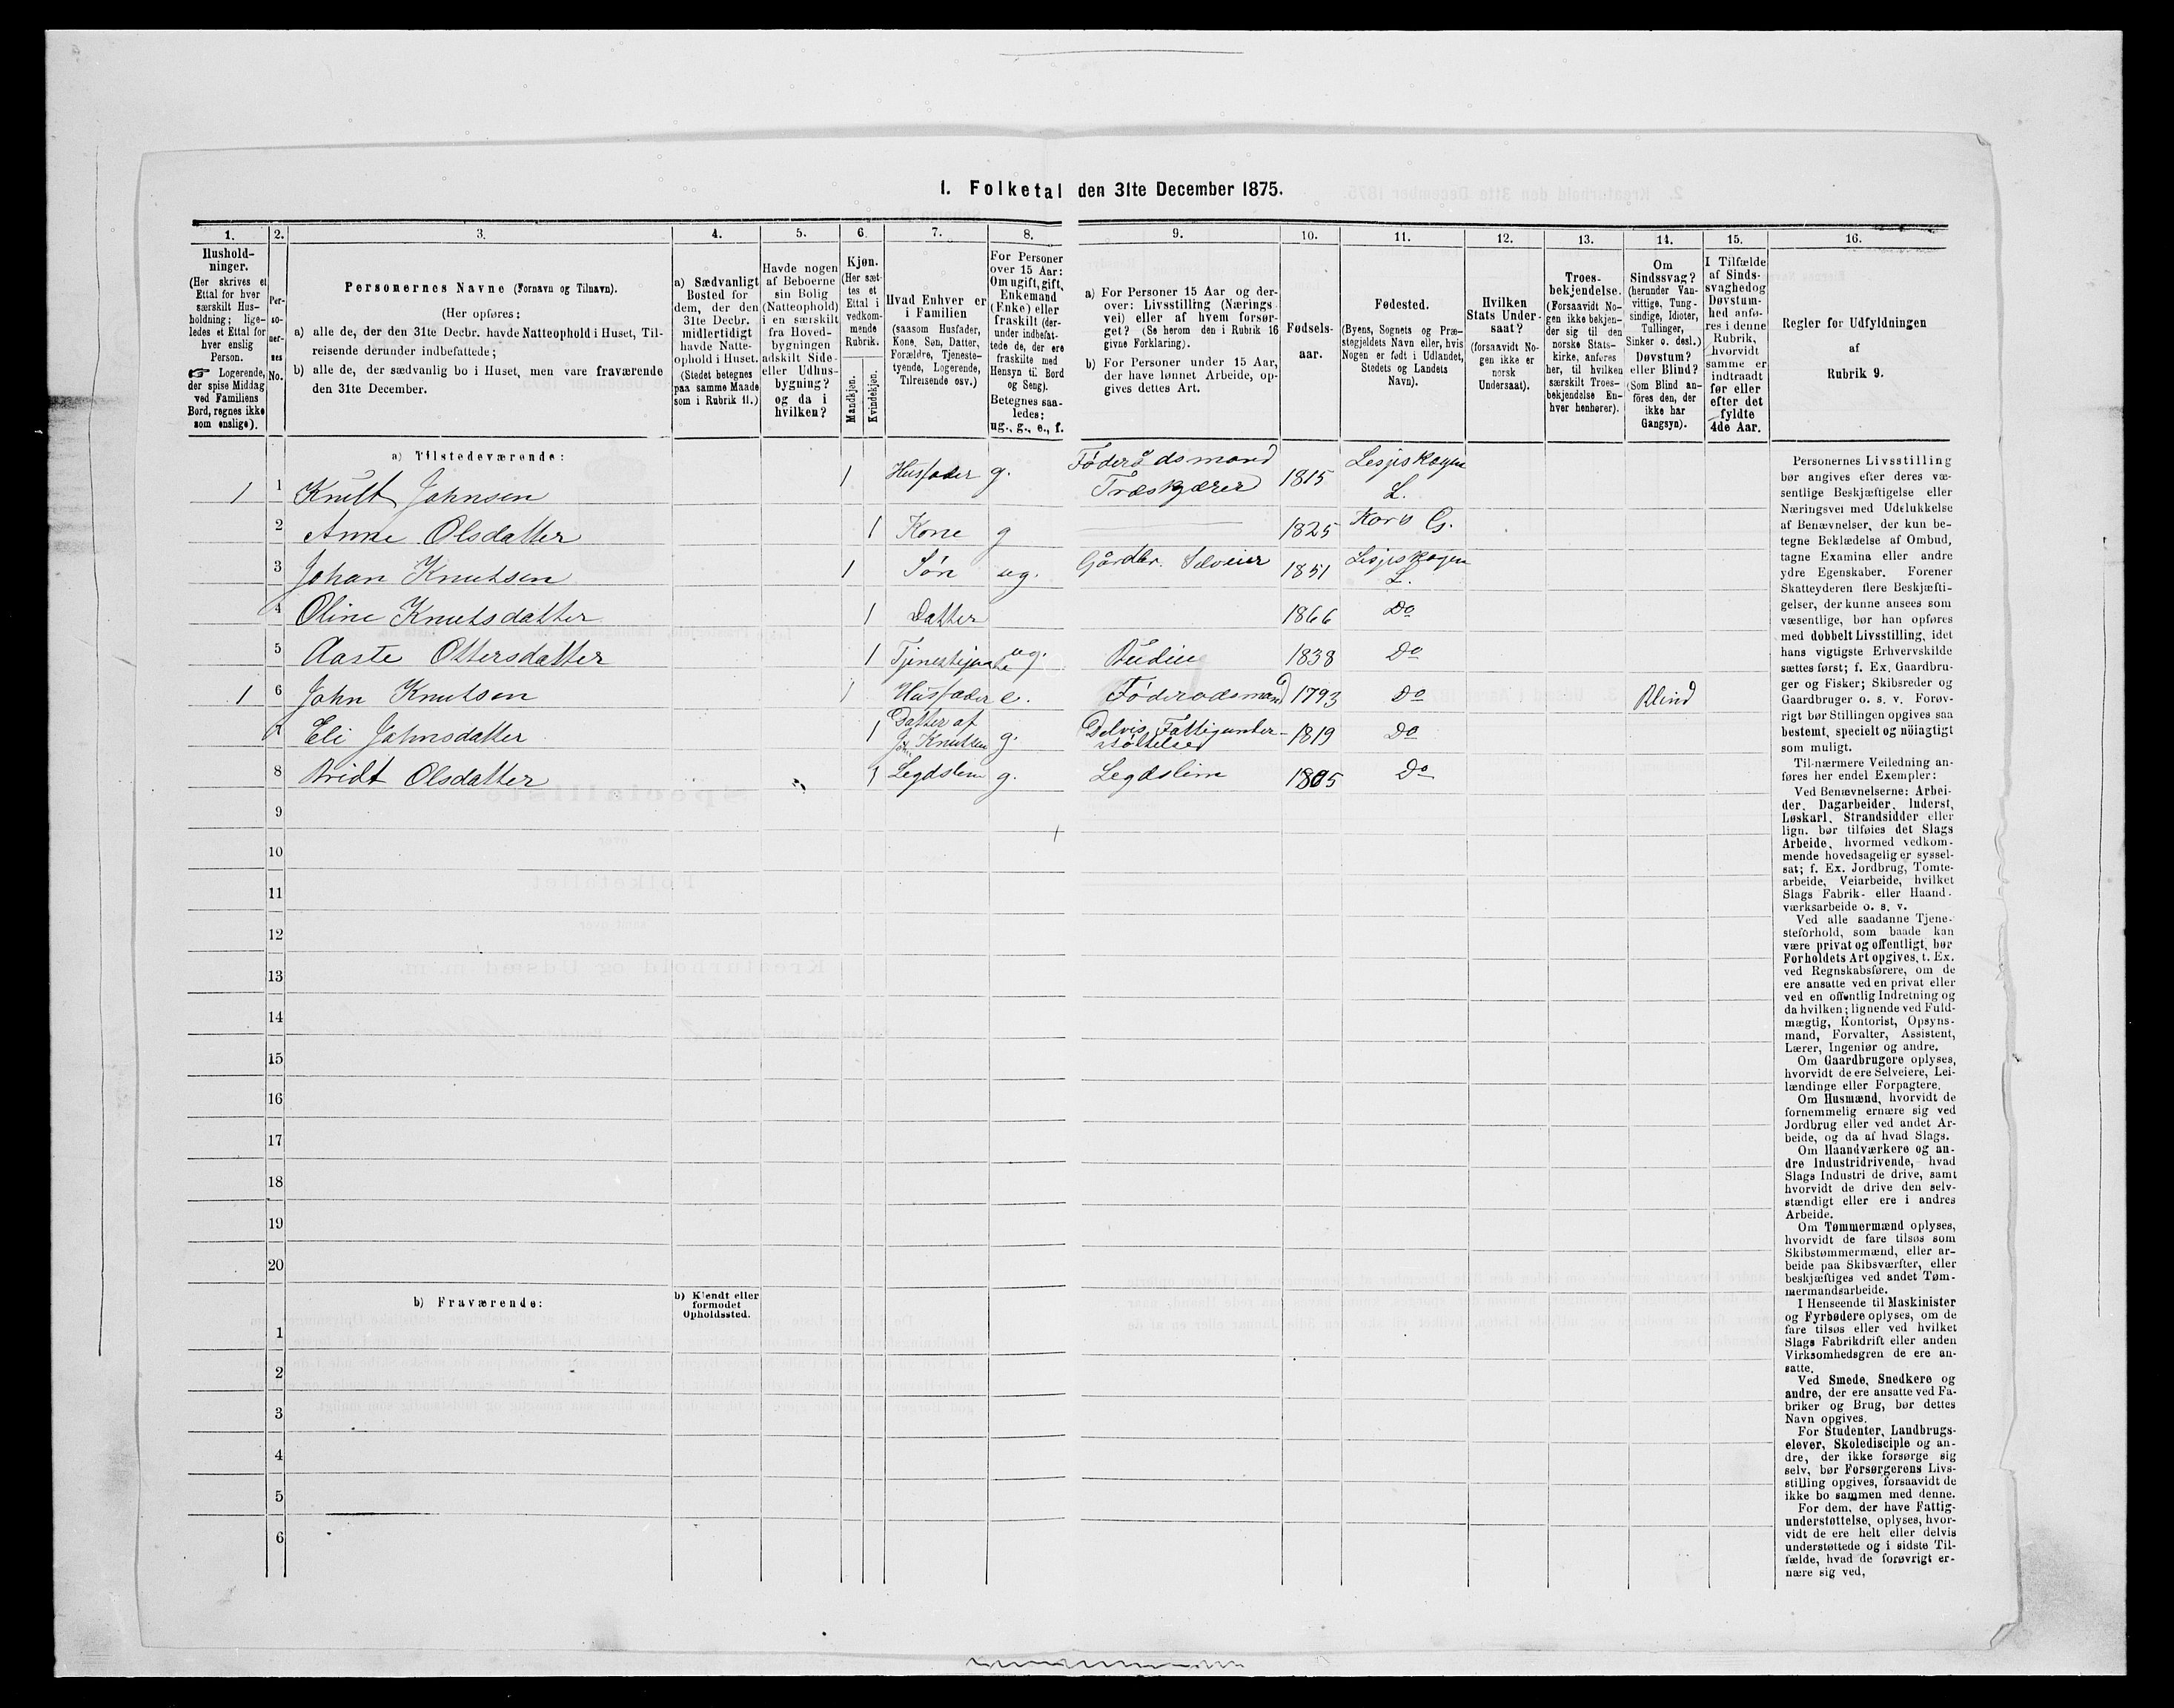 1. Folketal den 31te December 1875.
1.
2.
3.
4.
5.
6.
7.
8.
9.
10.
11.
12.
13.
14.
15.
16.
Hushold-
ninger.
(Her skrives et
Ettal for hver
særskilt Hus-
holdning; lige-
ledes et Ettal for
hver enslig
Person.
☞ Logerende,
der spise Middag
ved Familiens
Bord, regnes ikke
som enslige).
Per-
so-
ner-
nes
No.
Personernes Navne (Fornavn og Tilnavn).
(Her opføres:
a) alle de, der den 31te Decbr. havde Natteophold i Huset, Til-
reisende derunder indbefattede;
b) alle de, der sædvanlig bo i Huset, men vare fraværende
den 31te December.
a) Sædvanligt
Bosted for
dem, der den
31te Decbr.
midlertidigt
havde Natte-
ophold i Huset.
(Stedet betegnes
paa samme Maade
som i Rubrik 11.)
Havde nogen
af Beboerne
sin Bolig
(Natteophold)
i en særskilt
fra Hoved-
bygningen
adskilt Side-
eller Udhus-
bygning?
og da i
hvilken?
Kjøn.
(Her sæt-
tes et
Ettal i
vedkom-
mende
Rubrik.
Mandkjøn.
Kvindekjøn.
Hvad Enhver er
i Familien
(saasom Husfader,
Kone, Søn, Datter,
Forældre, Tjeneste-
tyende, Logerende,
Tilreisende osv.)
For Personer
over 15 Aar:
Om ugift, gift,
Enkemand
(Enke) eller
fraskilt (der-
under indbefat-
tede de, der ere
fraskilte med
Hensyn til Bord
og Seng).
Betegnes saa-
ledes:
ug., g., e., f.
a) For Personer 15 Aar og der-
over: Livsstilling (Nærings-
vei) eller af hvem forsør-
get? (Se herom den i Rubrik 16
givne Forklaring).
b) For Personer under 15 Aar,
der have lønnet Arbeide, op-
gives dettes Art.
Fødsels-
aar.
Fødested.
(Byens, Sognets og Præ-
stegjeldets Navn eller, hvis
Nogen er født i Udlandet,
Stedets og Landets
Navn).
Hvilken
Stats Under-
saat?
(forsaavidt No-
gen ikke er
norsk
Undersaat).
Troes-
bekjendelse.
(Forsaavidt No-
gen ikke bekjen-
der sig til den
norske Stats-
kirke, anføres
her, til hvilken
særskilt Troes-
bekjendelse En-
hver henhører).
Om
Sindssvag?
(herunder Van-
vittige, Tung-
sindige, Idioter,
Tullinger,
Sinker o. desl.)
Døvstum?
eller Blind?
(Som Blind an-
føres den, der
ikke har
Gangsyn).
I Tilfælde
af Sinds-
svaghed og
Døvstum-
hed anfø-
res i denne
Rubrik,
hvorvidt
samme er
indtraadt
før eller
efter det
fyldte
4de Aar.
Regler for Udfyldningen
af
Rubrik 9.
a) Tilstedeværende:
1 1 Knut Johnsen 1 Husfader g. Föderådsmand Træskjærer 1815 Lesjeskogen L.
2 Anne Olsdatter 1 Kone g 1825 Kors G.
3 Johan Knutsen 1 Sön ug. Gårdbr. Selveier 1851 Lesjeskogen L.
4 Oline Knutsdatter 1 Datter 1866 Do
5 Aaste Ottersdatter 1 Tjenestejente ug. Budeie 1838 Do
1 6 John Knutsen 1 Husfader e. Föderådsmand 1793 Do Blind
7 Eli Johnsdatter 1 Datter af Joh. Knutsen g. Delvis Fattigunderstøttelse 1819 Do
8 Bridt Olsdatter 1 Legdslem g. Legdslem 1805 Do
9
10
11
12
13
14
15
16
17
18
19
20
b) Fraværende:
b) Kjendt eller
formodet
Opholdssted.
1
2
3
4
5
6
Personernes Livsstilling
bør angives efter deres væ-
sentlige Beskjæftigelse eller
Næringsvei med Udelukkelse
af Benævnelser, der kun be-
tegne Beklædelse af Ombud,
tagne Examina eller andre
ydre Egenskaber. Forener
Skatteyderen flere Beskjæfti-
gelser, der kunne ansees som
væsentlige, bør han opføres
med dobbelt Livsstilling, idet
hans vigtigste Erhvervskilde
sættes først; f. Ex. Gaardbru-
ger og Fisker; Skibsreder og
Gaardbruger o. s. v. Forøv-
rigt bør Stillingen opgives saa
bestemt, specielt og nöiagtigt
som muligt.
Til nærmere Veiledning an-
føres her endel Exempler:
Ved Benævnelserne: Arbei-
der, Dagarbeider, Inderst,
Løskarl, Strandsidder eller
lign. bør tilføies det Slags
Arbeide, hvormed vedkom-
mende hovedsagelig er syssel-
sat; f. Ex. Jordbrug, Tomte-
arbeide, Veiarbeide, hvilket
Slags Fabrik- eller Haand-
værksarbeide o. s. v.
Ved alle saadanne Tjene-
steforhold, som baade kan
være privat og offentligt, bør
Forholdets Art opgives, f. Ex.
ved Regnskabsførere, om de
ere ansatte ved en privat eller
ved en offentlig Indretning og
da hvilken; lignende ved Fuld-
mægtig, Kontorist, Opsyns-
mand, Forvalter, Assistent,
Lærer, Ingeniør og andre.
Om Gaardbrugere oplyses,
hvorvidt de ere Selveiere, Lei-
lændinge eller Forpagtere.
Om Husmænd, hvorvidt de
fornemmelig ernære sig ved
Jordbrug eller ved andet Ar-
beide, og da af hvad Slags.
Om Haandværkere og an-
dre Industridrivende, hvad
Slags Industri de drive, samt
hvorvidt de drive den selv-
stændigt eller ere i andres
Arbeide.
Om Tømmermænd oplyses,
hvorvidt de fare tilsøs som
Skibstømmermænd, eller ar-
beide paa Skibsværfter, eller
beskjæftiges ved andet Tøm-
mermandsarbeide.
I Henseende til Maskinister
og Fyrbødere oplyses, om de
fare tilsøs eller ved hvilket
Slags Fabrikdrift eller anden
Virksomhedsgren de ere an-
satte.
Ved Smede, Snedkere og
andre, der ere ansatte ved Fa-
briker og Brug, bør dettes
Navn opgives.
For Studenter, Landbrugs-
elever, Skoledisciple og an-
dre, der ikke forsørge sig
selv, bør Forsørgerens Livs-
stilling opgives, forsaavidt de
ikke bo sammen med denne.
For dem, der have Fattig-
understøttelse, oplyses, hvor-
vidt de ere helt eller delvis
understøttede og i sidste Til-
fælde, hvad de forøvrigt er-
nære sig ved,